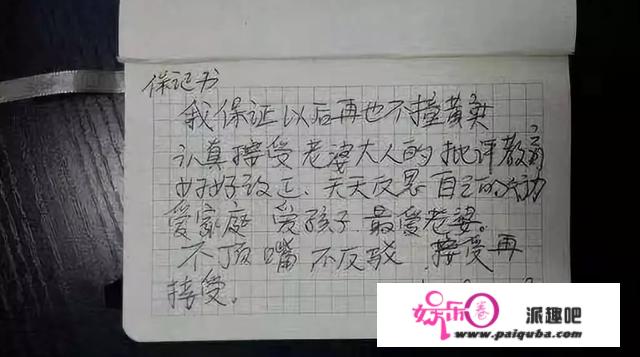 保证书
我保证以后再也不撞黄
认真接受老婆大人的批评教育
好好改正、天天反思自己的动
爱家庭 爱孩子 最爱老婆。
不顶嘴 不反驳,接受再
接受。
娱乐圈 派趣吧
www.paiquba.com